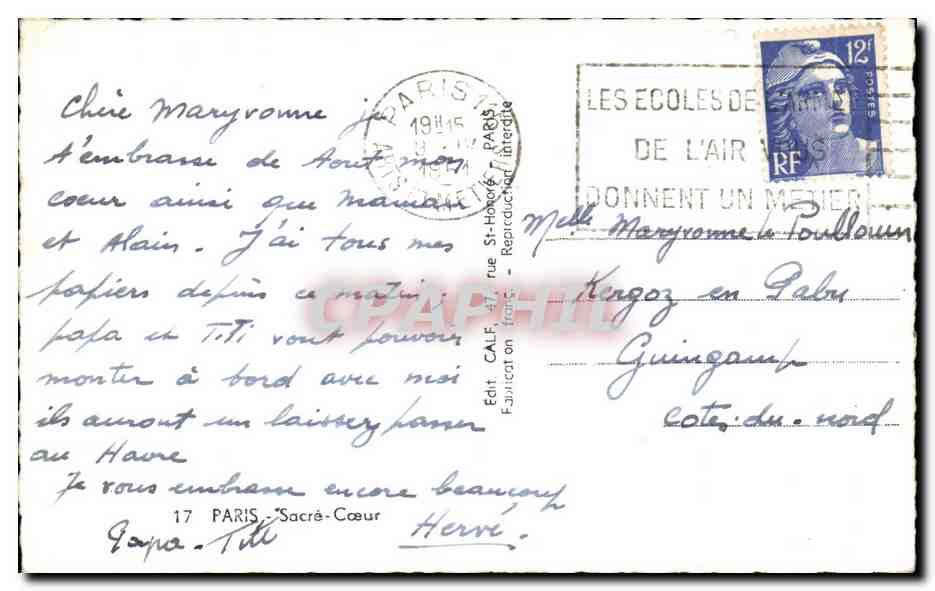 Chère Maryvonne je
t'embrasse de tout mon
cœur ainsi que Maman
et Alain. J'ai tous mes
papiers depuis ce matin,
papa et Titi vont pouvoir
monter à bord avec moi
ils auront un laissez passer
au Havre
Je vous embrasse encore beaucoup
Hervé.
Papa - Titi
17 PARIS - Sacré-Cœur
PARIS
19H15
LES ECOLES DE
DE L'AIR VOUS
DONNENT UN METIER
12F
POSTES
RF
Edit. CALF, 47, rue St-Honoré - PARIS
Fabrication franç. - Reproduction interdite
Melle Maryvonne le
Kergoz en Pabu
Guingamp
Cotes-du-Nord
CPAPHIL